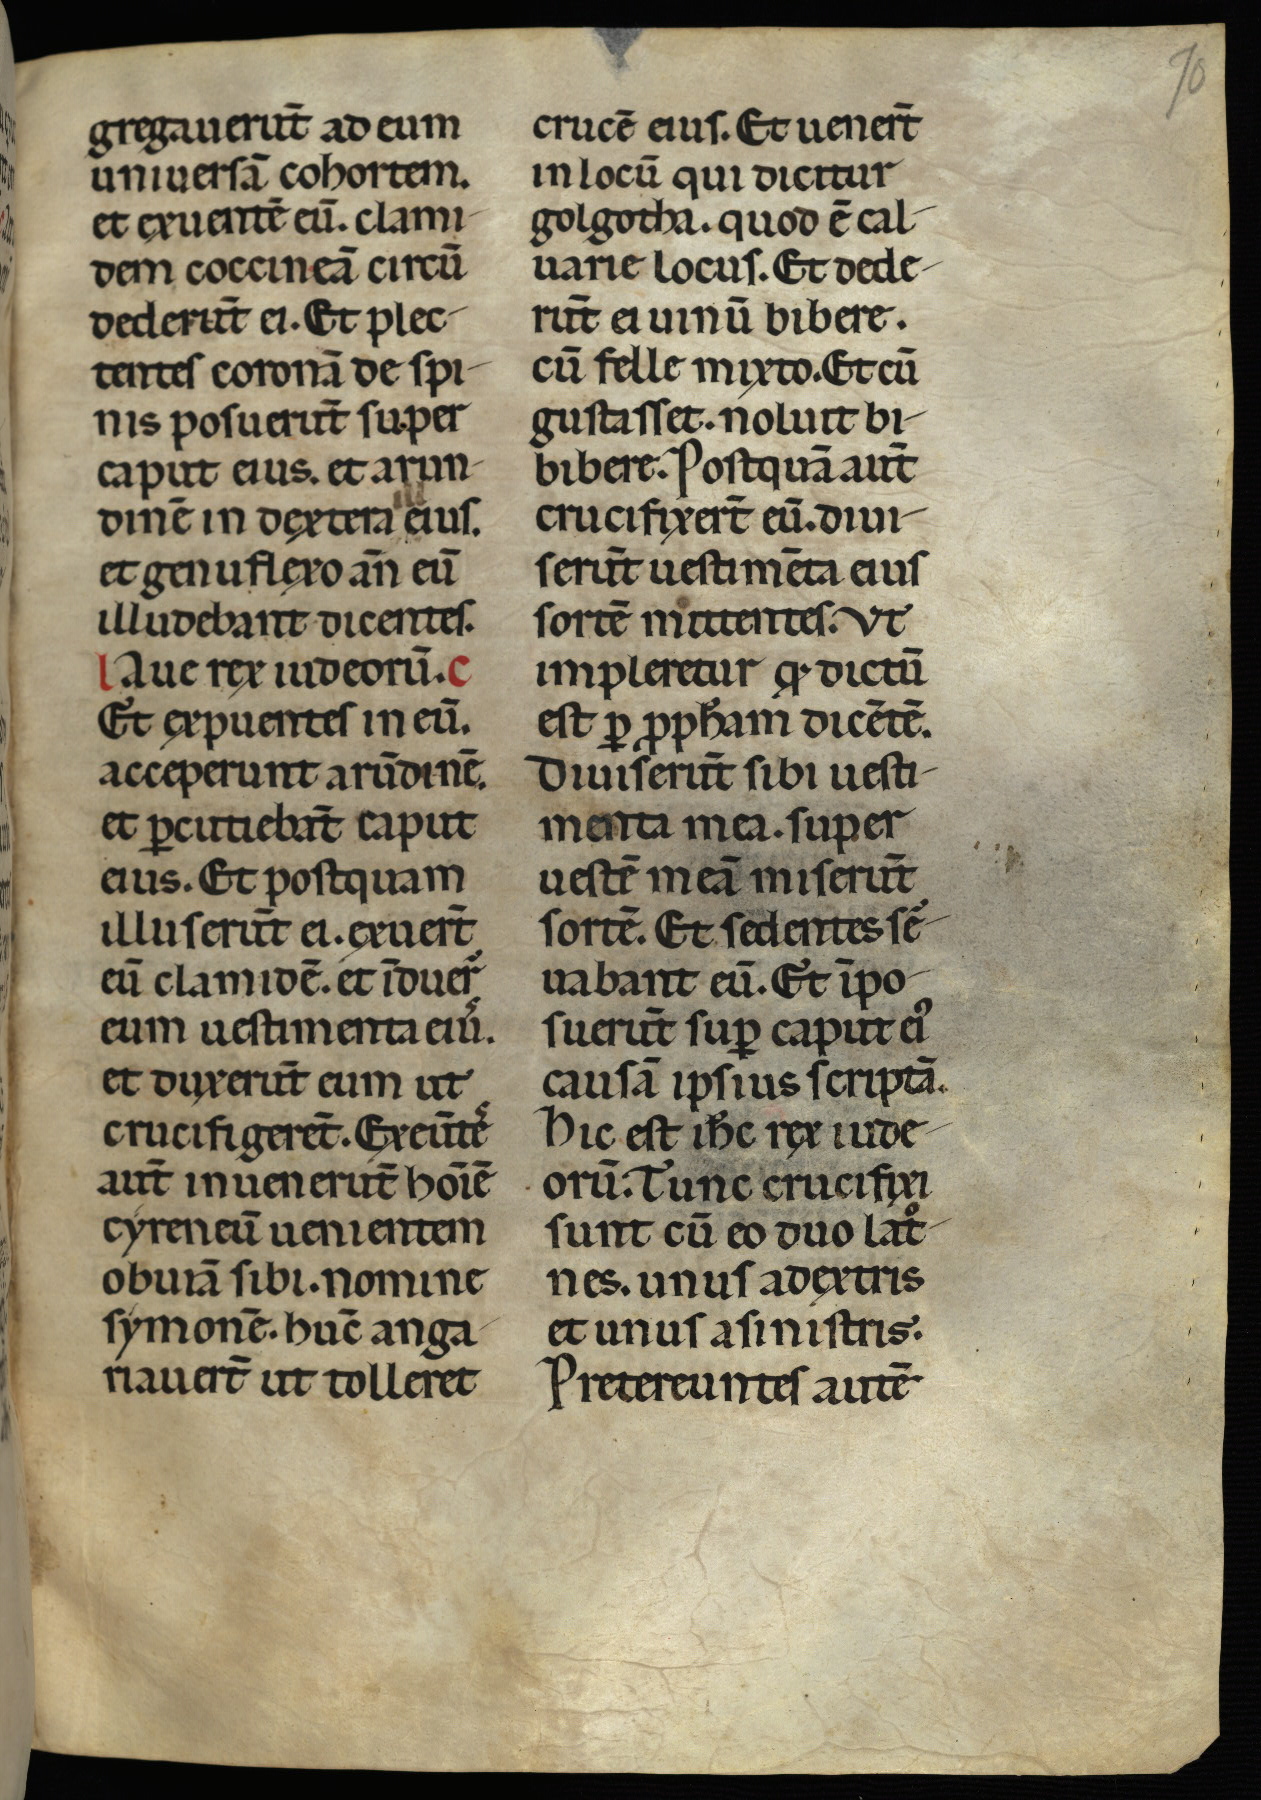 70
gregauerūt ad eum
uniuersā cohortem.
et exuentē eū. clami-
dem coccineā circū
dederūt ei. Et plec-
tentes coronā de spi-
nis posuerūt super
caput eius. et arun-
dinē in dextera eius.
et genuflexo an̄ eū
illudebant dicentes.
l Aue rex iudeorū. c
Et expuentes in eū.
acceperunt arūdinē.
et ꝑcutiebāt caput
eius. Et postquam
illuserūt ei. exuert̄
eū clamidē. et īduer̄
eum uestimenta eiuˢ.
et duxerūt eum ut
crucifigeret̄. Exeūtēˢ
aut̄ inuenerūt hoīē
cyreneū uenientem
obuiā sibi. nomine
symonē. huc̄ anga-
riauert̄ ut tolleret
crucē eius. Et uenert̄
in locū qui dicitur
golgotha. quod ē cal-
uarie locus. Et dede-
rūt ei uinū bibere.
cū felle mixto. Et cū
gustasset. noluit bi-
bibere. Postquā aut̄
crucifixert̄ eū. diui-
serūt uestimēta eius
sortē mittentes. Vt
impleretur ꝙ dictū
est ꝑ ꝓpham̄ dicētē.
Diuiserūt sibi uesti-
menta mea. super
uestē meā miserūt
sortē. Et sedentes sē-
uabant eū. Et īpo-
suerūt suꝑ caput ei᾿
causā ipsius scriptā.
Hic est ih̄c rex iude-
orū. Tunc crucifixi
sunt cū eo duo latͦ-
nes. unus adextris
et unus asinistris.
Pretereuntes autē